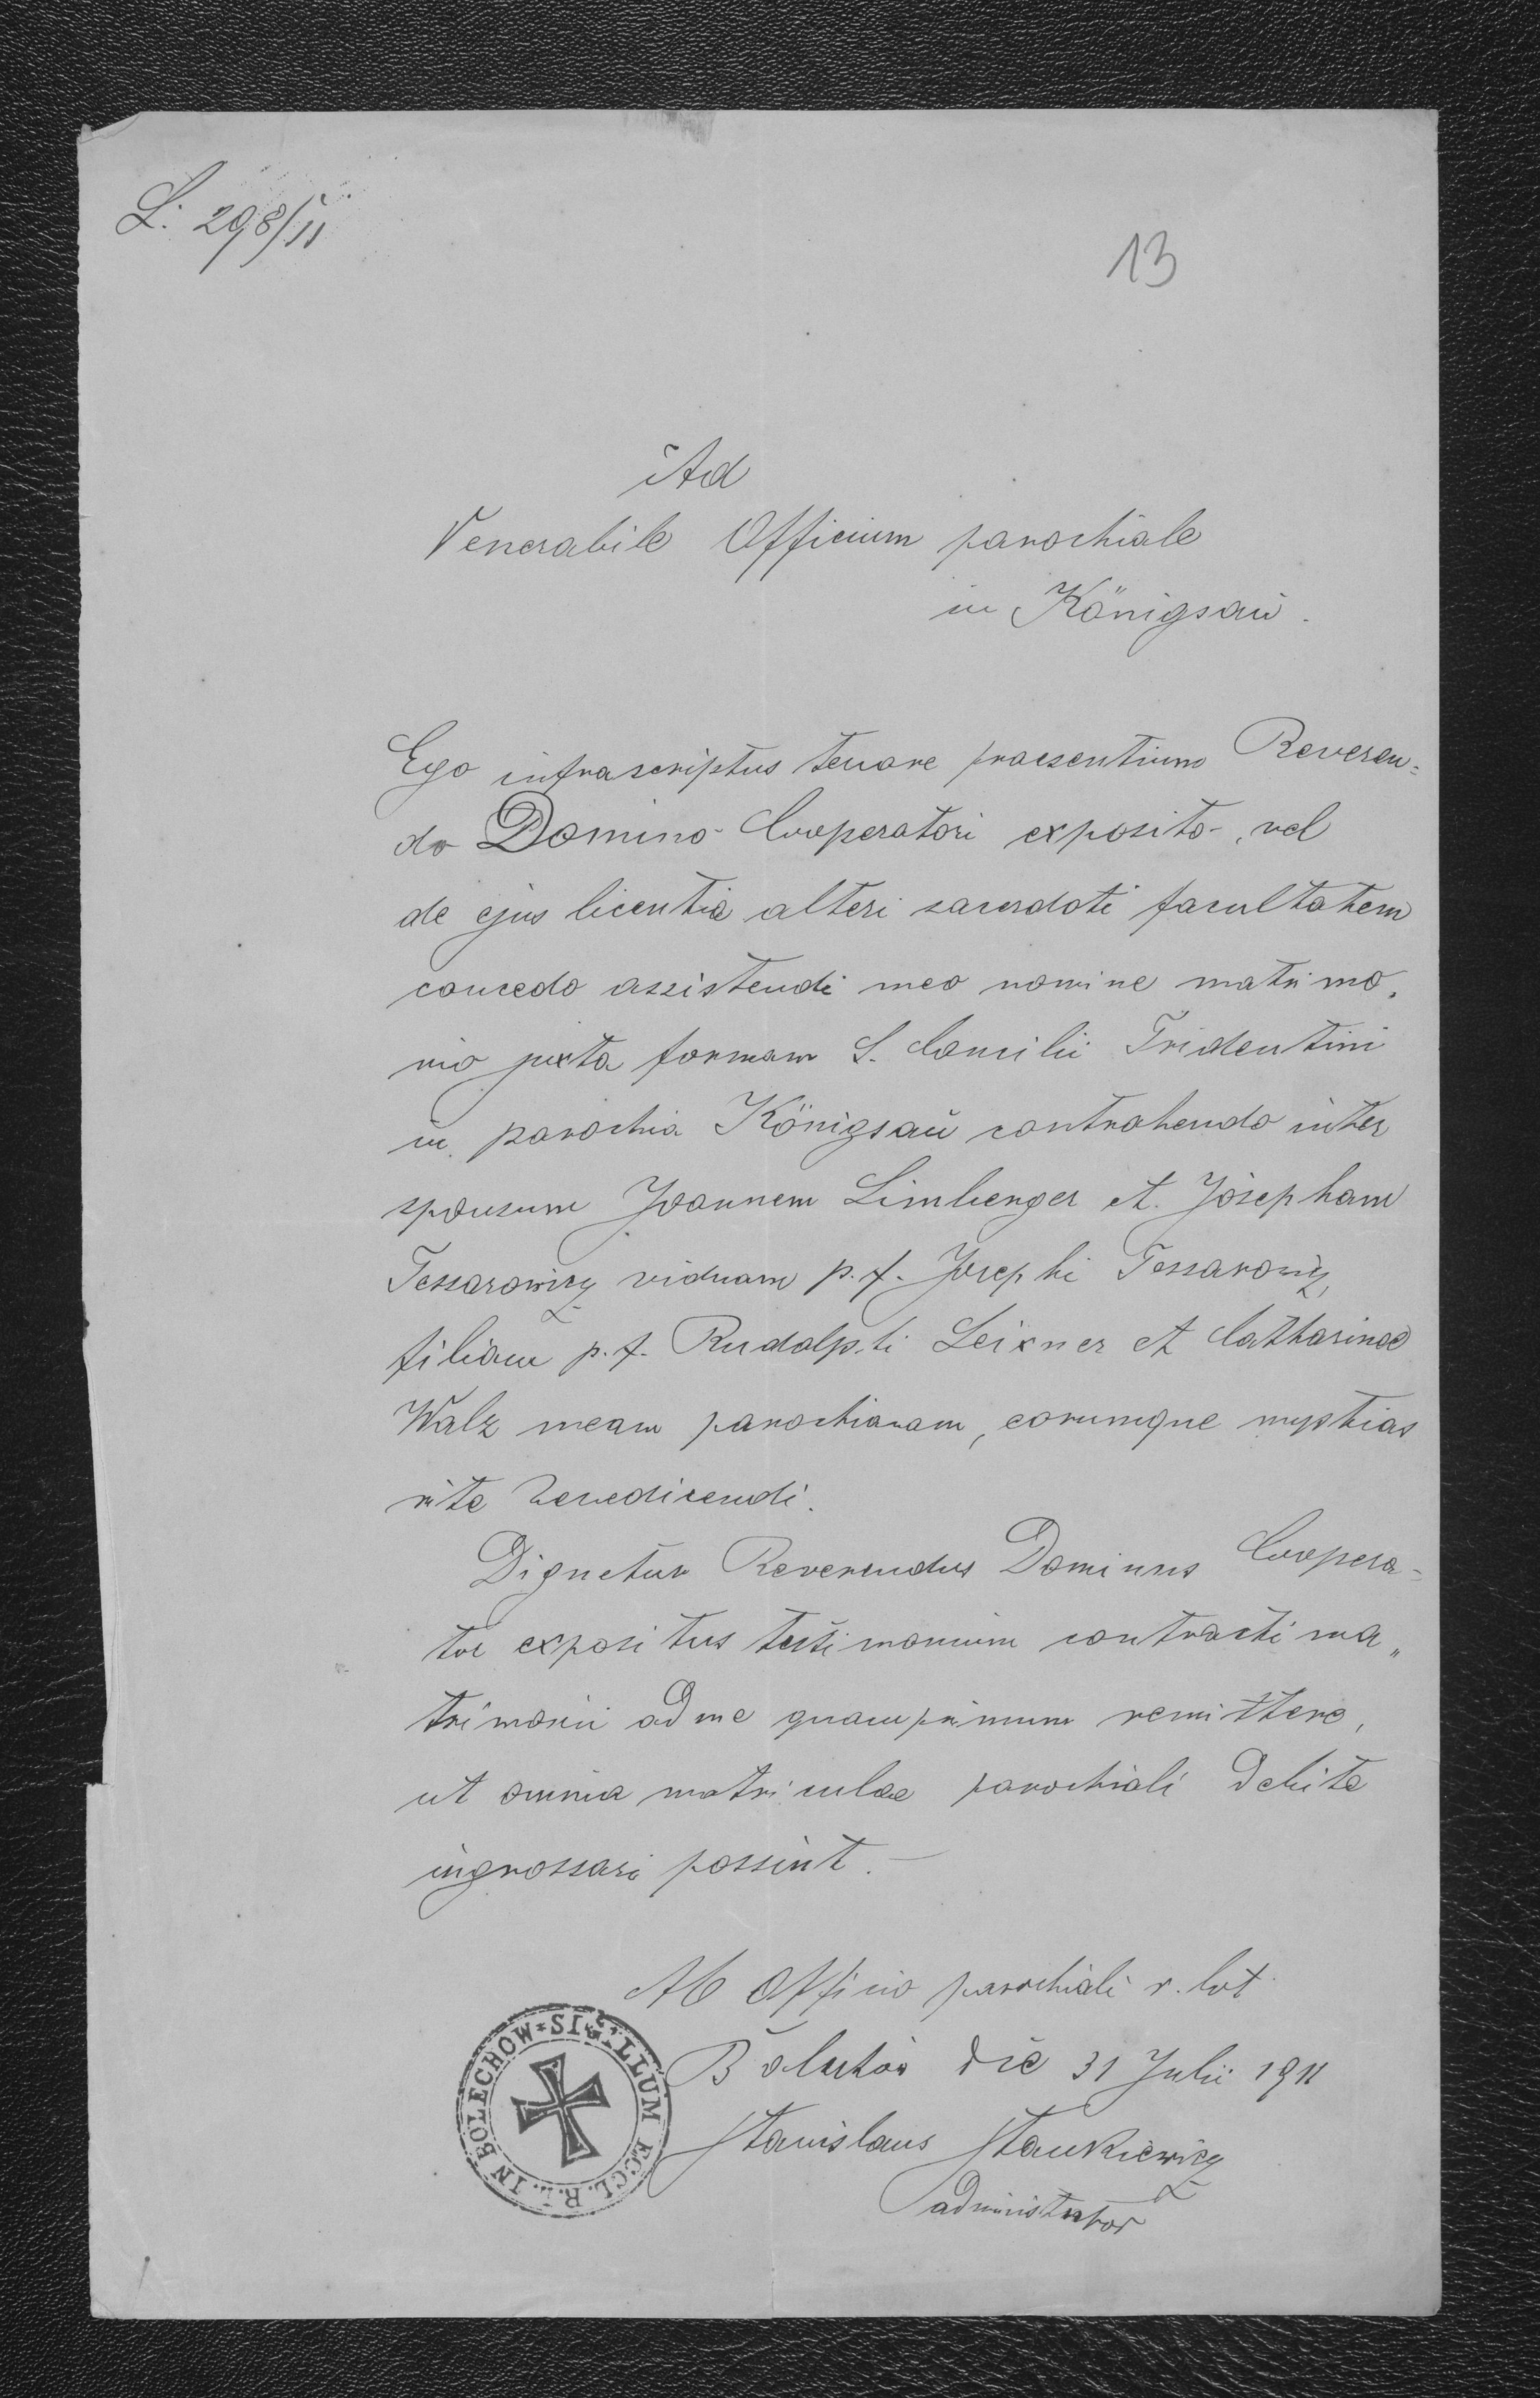 L: 298/11
13
Ad
Venerabile Officium parochiale
in Königsaŭ.
Ego infrascriptus tenore praesentium Reveren=
do Domino Cooperatori exposito, vel
de ejus licentia alteri sacerdoti facultatem
concedo assistendi meo nomine matrimo„
nio juxta formam S. Concilii Tridentini
in parochia Königsaŭ contrahendo inter
sponsum Joannem Limberger et Josepham
Tessarowicz viduam p. f. Josephi Tessarowicz,
filiam p. f. Rudolphi Leixner et Catharinae
Walz meam parochianam, eorumque nuptias
rite benedicendi.
Dignetur Reverendus Dominus Coopera=
tor expositus testimonium contracti ma„
trimonii ad me quamprimum remittere,
ut omnia matriculae parochiali debite
ingrossari possint.—
Ab Officio parochiali r. lat
Bolechów die 31 Julii 1911
Stanislaus Stankiewicz
administrator
SIGILLUM ECCL. R. L. IN BOLECHOW *